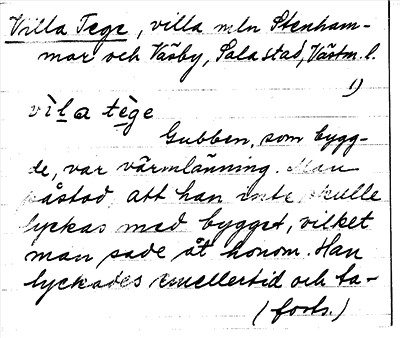 Villa Tege, villa mln Stenham-
mar och Väsby, Sala stad, Västm. l.
1)
vìl a tège
Gubben, som bygg-
de, var värmlänning. Man
påstod, att han inte skulle
lyckas med bygget, vilket
man sade åt honom. Han
lyckades emellertid och ta-
(forts.)